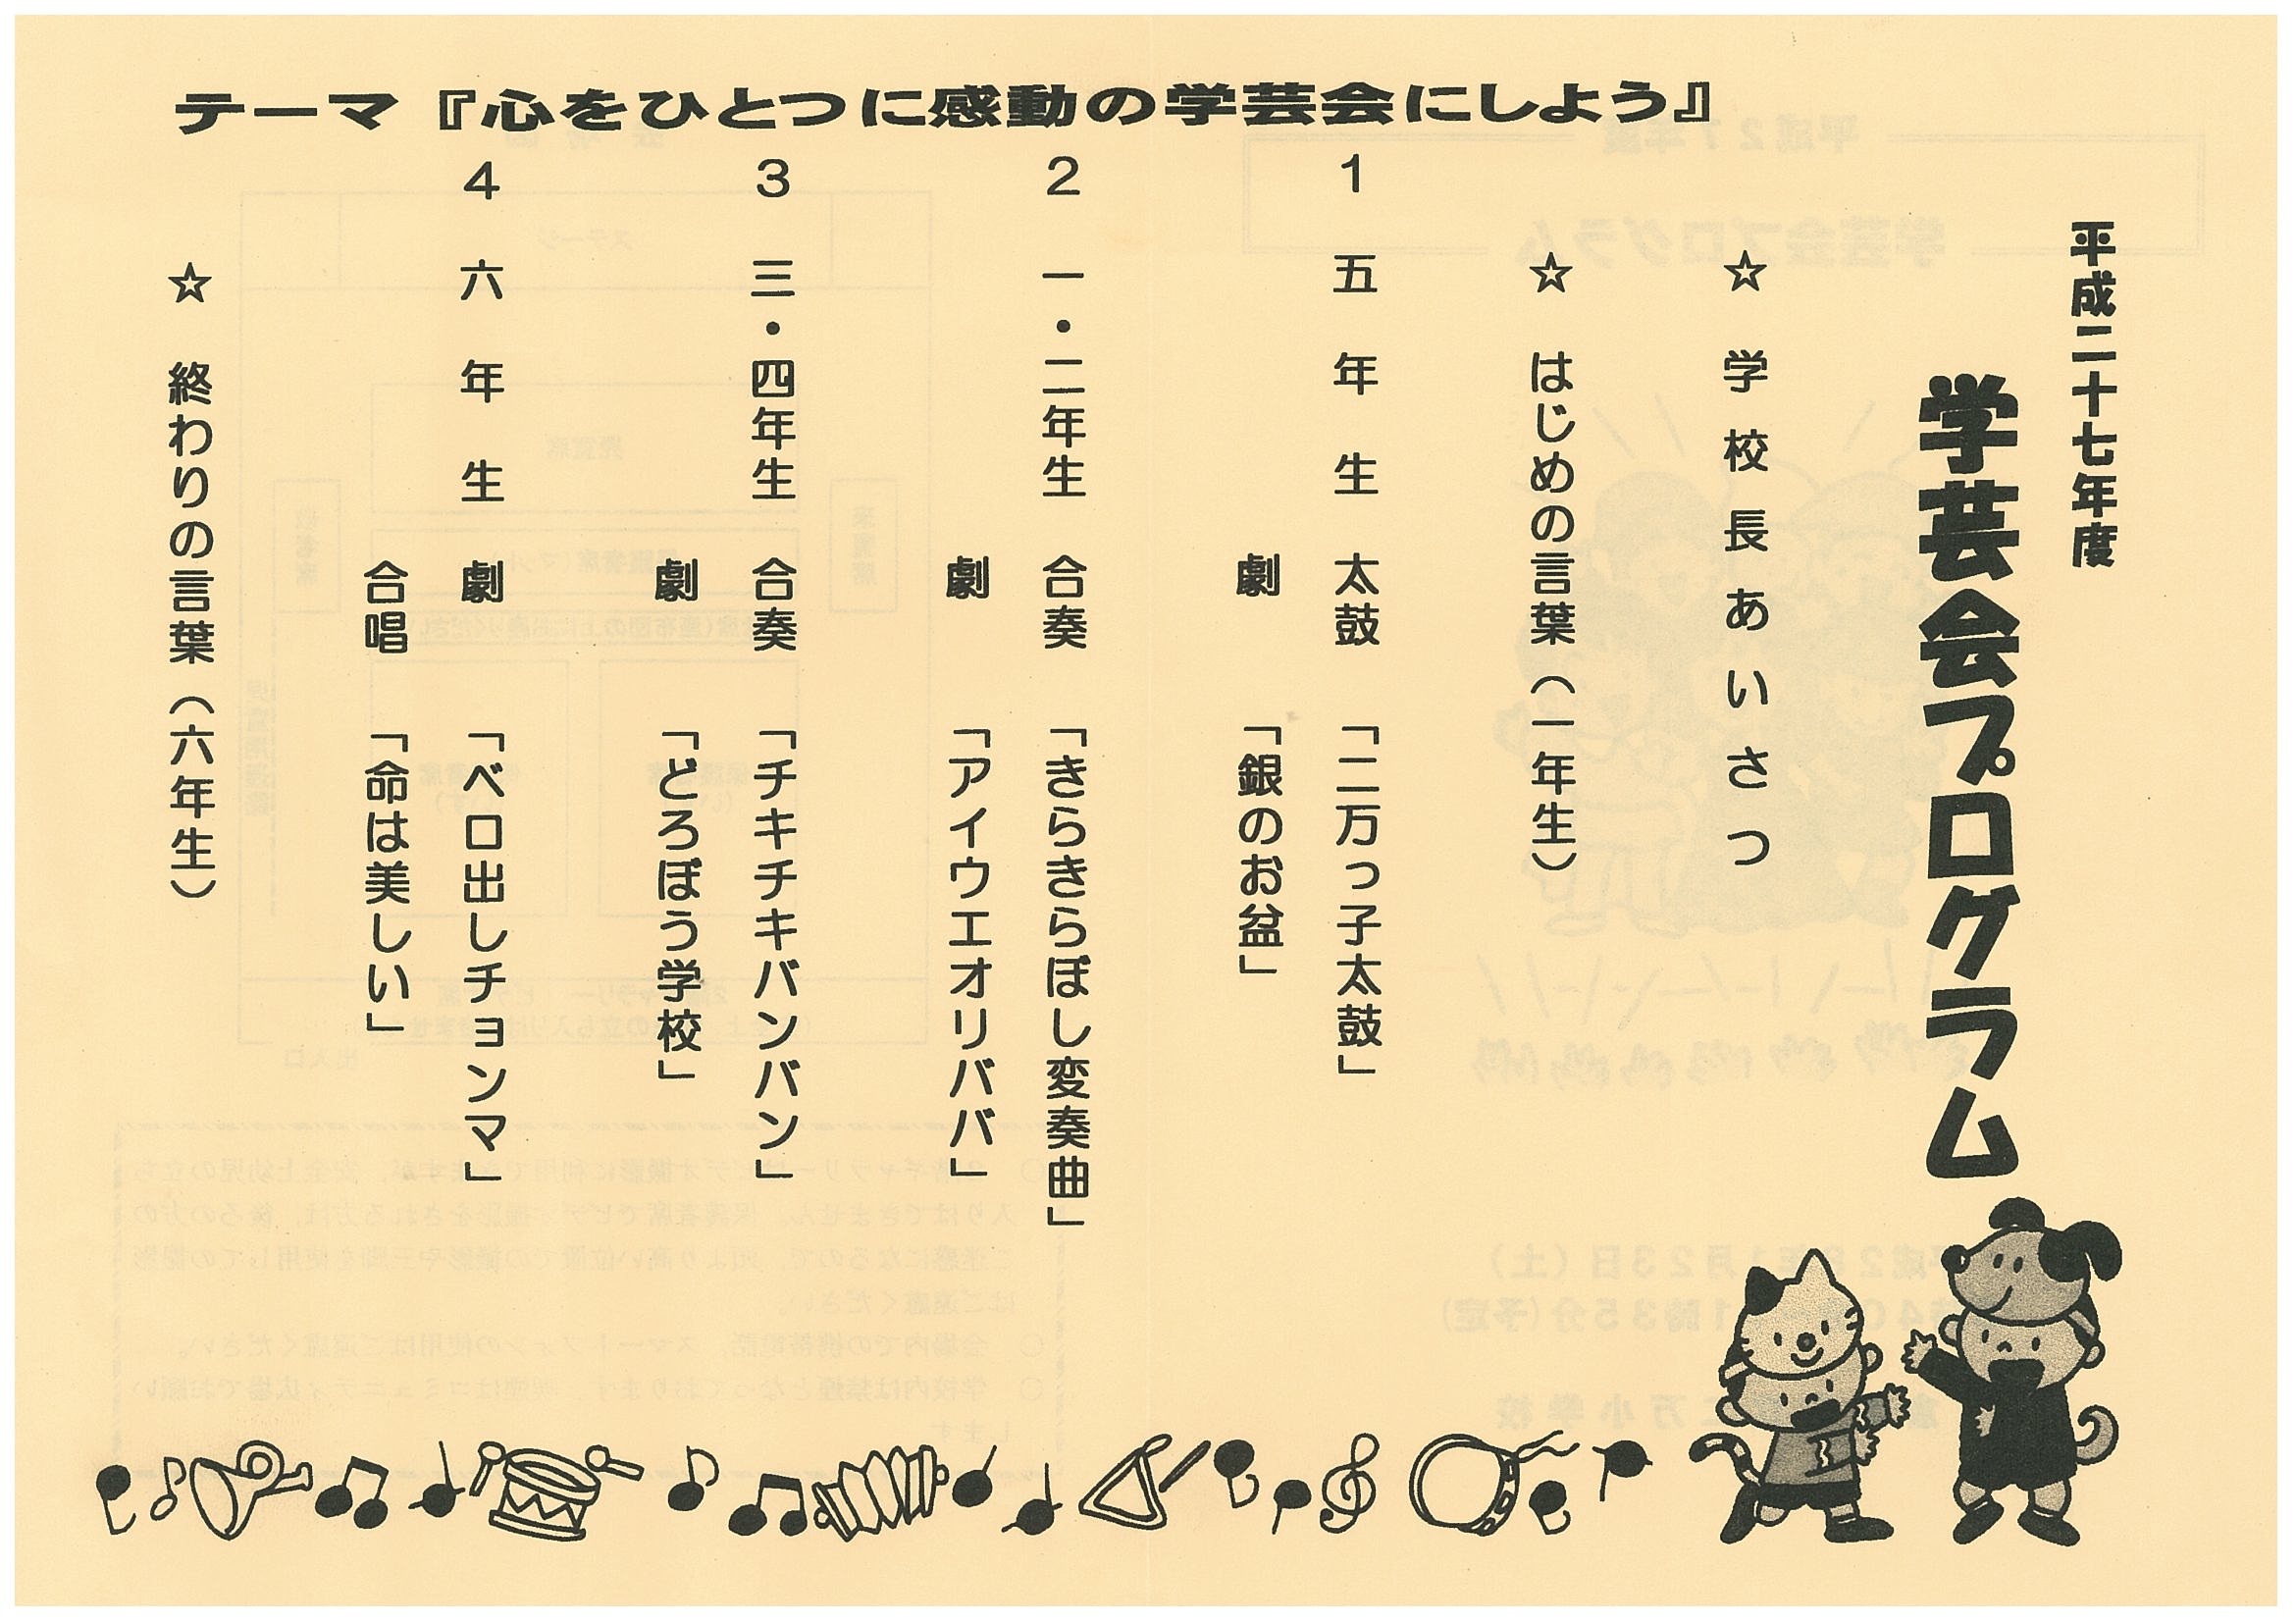 テーマ『心をひとつに感動の学芸会にしよう』
平成二十七年度
学芸会プログラム
☆ 学校長あいさつ
☆ はじめの言葉（一年生）
1 五年生 太鼓 「二万っ子太鼓」
劇 「銀のお盆」
2 一・二年生 合奏 「きらきらぼし変奏曲」
劇 「アイウエオリババ」
3 三・四年生 合奏 「チキチキバンバン」
劇 「どろぼう学校」
4 六年生 劇 「ベロ出しチョンマ」
合唱 「命は美しい」
☆ 終わりの言葉（六年生）